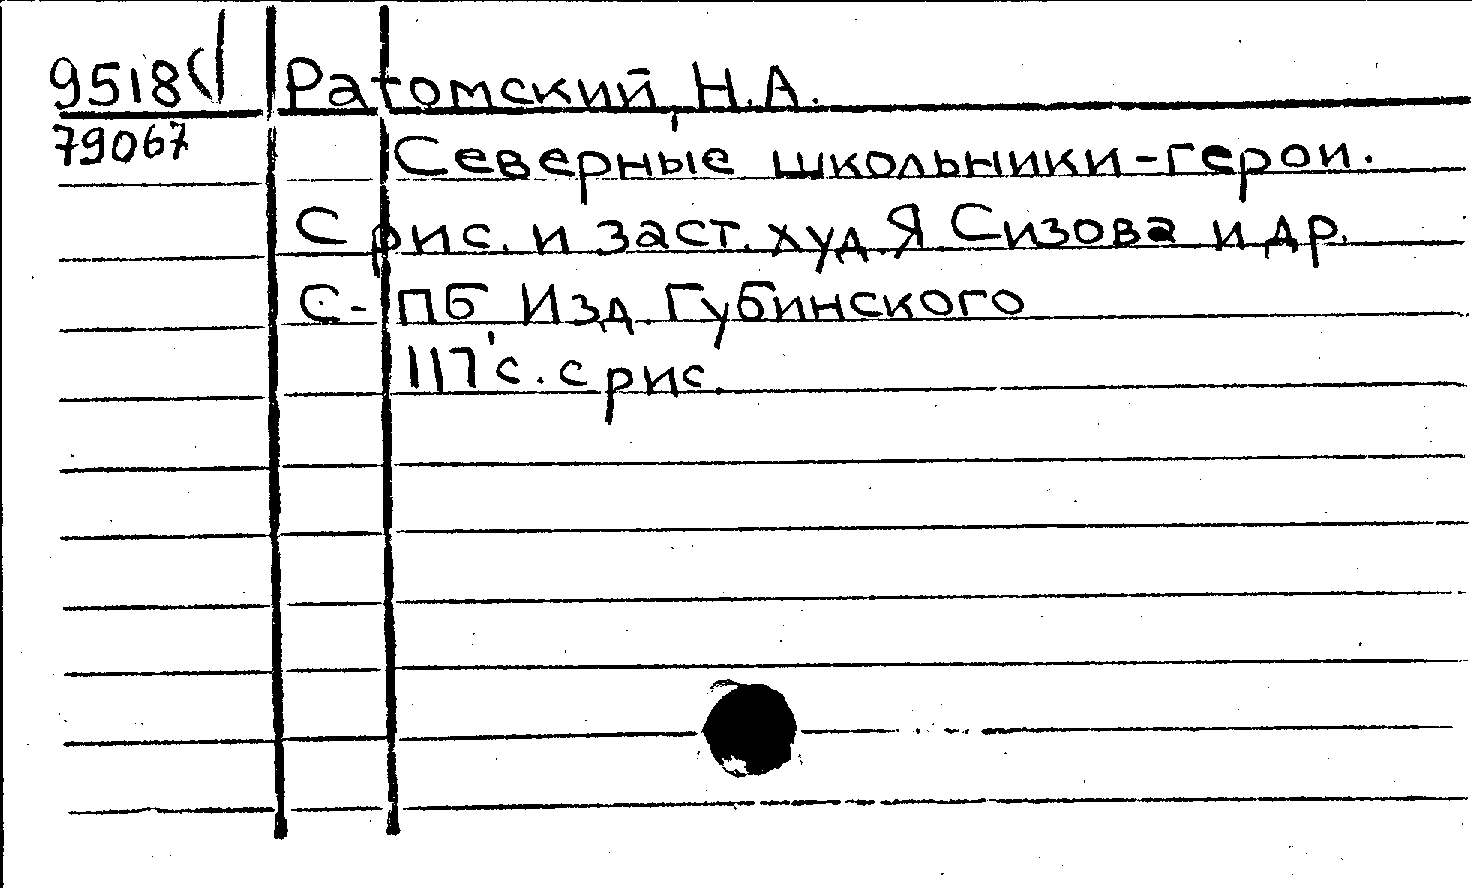 9518 Ратомский, Н.А.
79067 Северные школьники-герои.
С рис. и заст. худ. Я. Сизова и др.
С-ПБ, Изд. Губинского
117 с. с рис.